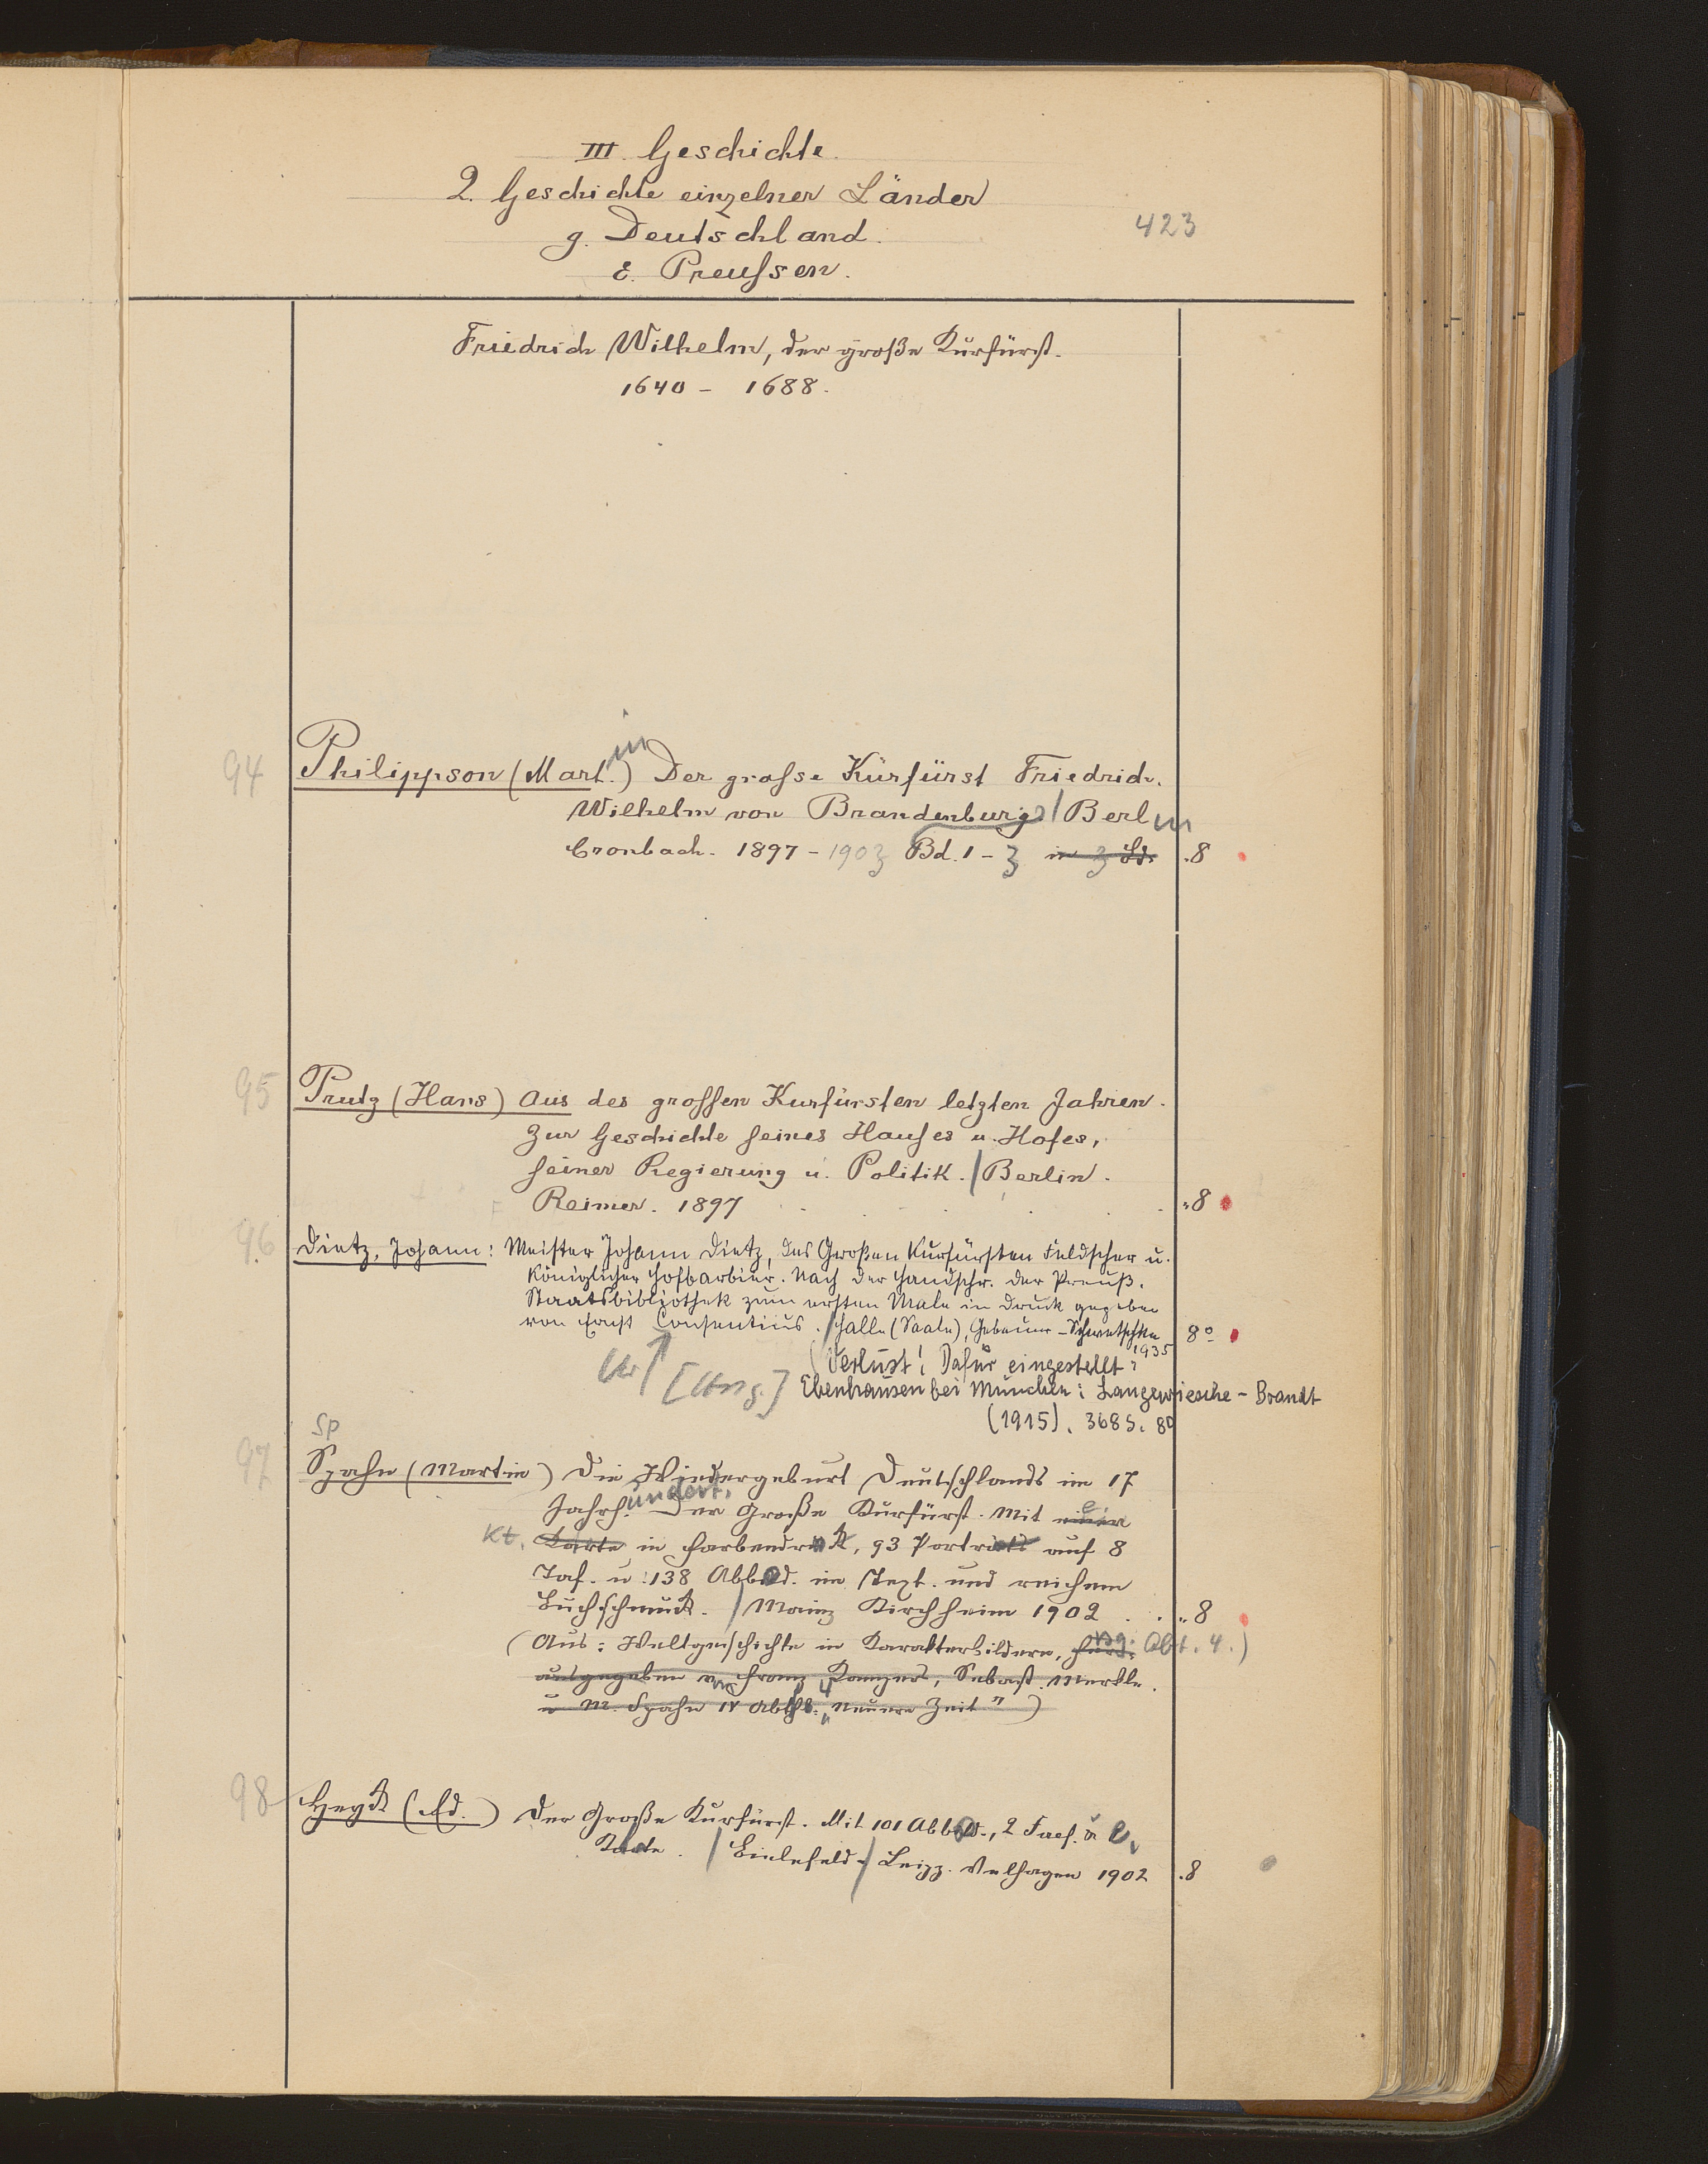 III. Geschichte.
2. Geschichte einzelner Länder
g. Deutschland.
423
ε. Preußsen.
Friedrich Wilhelm, der große Kurfürst.
1640 - 1688.
in
94 Philippson (Mart.) Der große Kurfürst Friedrich
Wilhelm von Brandenburg / Berlin
Cronbach. 1897 - 1903 Bd. 1 - 3 in 3 Bd. .8
95 Prutz (Hans) Aus des großen Kurfürsten letzten Jahren.
Zur Geschichte seines Hauses u. Hofes,
seiner Regierung u. Politik. / Berlin.
Reimer. 1897 . . . . . "8
96 Dietz, Johann: Meister Johann Dietz, des Großen Kurfürsten Feldscher u.
Königlicher Hofbarbier. Nach der Handschr. der Preuß.
Staatsbibliothek zum ersten Male in Druck gegeben
von Ernst Consentius. / Halle (Saale), Gebauer-Schwetschke 8°
1935
(Verlust! Dafür eingestellt:
[Hrsg.] Ebenhausen bei München: Langewiesche-Brandt
(1915). 368 S. 8°
Sp
97 Spahn (Martin) Die Wiedergeburt Deutschlands im 17
undert.
Jahrh. Der Große Kurfürst. Mit einer
Kt. Karte in Farbendruck, 93 Porträts auf 8
Taf. u. 138 Abbild. im Text. und reichem
Buchschmuck. / Mainz Kirchheim 1902 . . "8
(Aus: Weltgeschichte in Karakterbildern, hrsg. Abt. 4.)
ausgegeben von Franz Kampers, Sebast. Merkle.
u M. Spahn IV Abthl. 4 "Neuere Zeit")
98 Heyck (Ed.) Der Große Kurfürst. Mit 101 Abbild., 2 Facs. u e.
Karte. / Bielefeld / Leipz. Velhagen 1902 .8